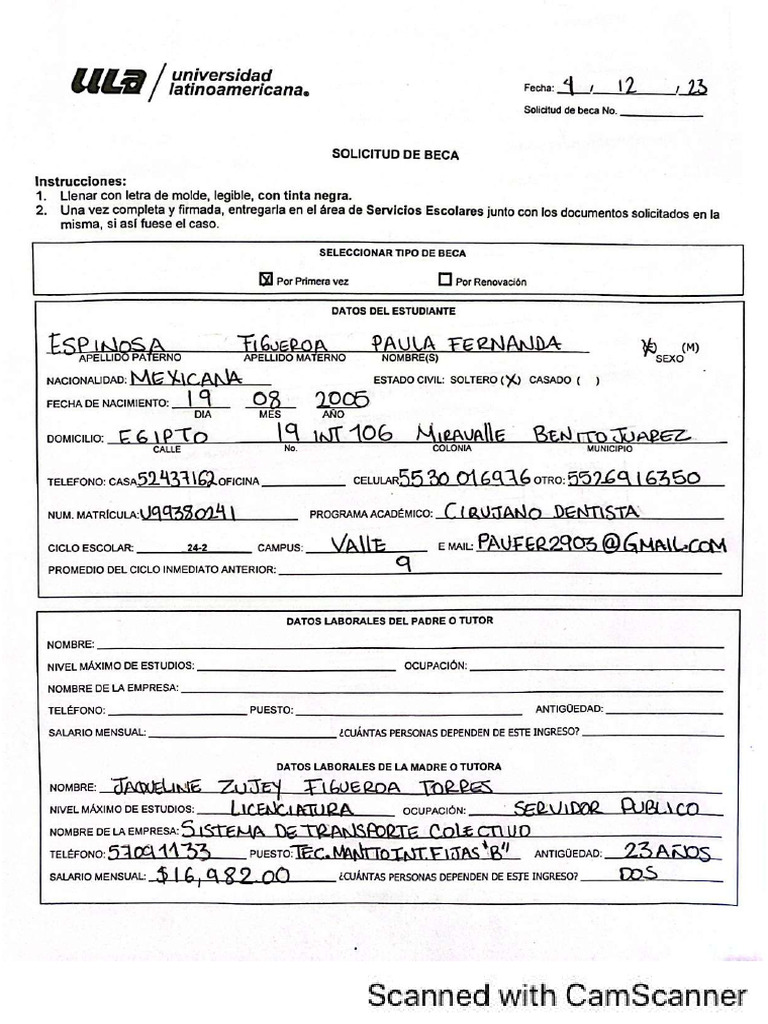 ULA / universidad latinoamericana.
Fecha: 4 / 12 / 23
Solicitud de beca No.
SOLICITUD DE BECA
Instrucciones:
1. Llenar con letra de molde, legible, con tinta negra.
2. Una vez completa y firmada, entregarla en el área de Servicios Escolares junto con los documentos solicitados en la
misma, si así fuese el caso.
SELECCIONAR TIPO DE BECA
X Por Primera vez Por Renovación
DATOS DEL ESTUDIANTE
ESPINOSA FIGUEROA PAULA FERNANDA (M)
APELLIDO PATERNO APELLIDO MATERNO NOMBRE(S) SEXO
NACIONALIDAD: MEXICANA ESTADO CIVIL: SOLTERO (X) CASADO ( )
FECHA DE NACIMIENTO: 19 08 2005
DIA MES AÑO
DOMICILIO: EGIPTO 19 INT 106 MIRAVALLE BENITO JUAREZ
CALLE No. COLONIA MUNICIPIO
TELEFONO: CASA 52437162 OFICINA CELULAR 5530016976 OTRO: 5526916350
NUM. MATRÍCULA: U99380241 PROGRAMA ACADÉMICO: CIRUJANO DENTISTA
CICLO ESCOLAR: 24-2 CAMPUS: VALLE E MAIL: PAUFER2903@GMAIL.COM
PROMEDIO DEL CICLO INMEDIATO ANTERIOR: 9
DATOS LABORALES DEL PADRE O TUTOR
NOMBRE:
NIVEL MÁXIMO DE ESTUDIOS: OCUPACIÓN:
NOMBRE DE LA EMPRESA:
TELÉFONO: PUESTO: ANTIGÜEDAD:
SALARIO MENSUAL: ¿CUÁNTAS PERSONAS DEPENDEN DE ESTE INGRESO?
DATOS LABORALES DE LA MADRE O TUTORA
NOMBRE: JAQUELINE ZUJEY FIGUEROA TORRES
NIVEL MÁXIMO DE ESTUDIOS: LICENCIATURA OCUPACIÓN: SERVIDOR PUBLICO
NOMBRE DE LA EMPRESA: SISTEMA DE TRANSPORTE COLECTIVO
TELÉFONO: 57091133 PUESTO: TEC. MANTTO INT. FIJAS "B" ANTIGÜEDAD: 23 AÑOS
SALARIO MENSUAL: $16,982.00 ¿CUÁNTAS PERSONAS DEPENDEN DE ESTE INGRESO? DOS
Scanned with CamScanner